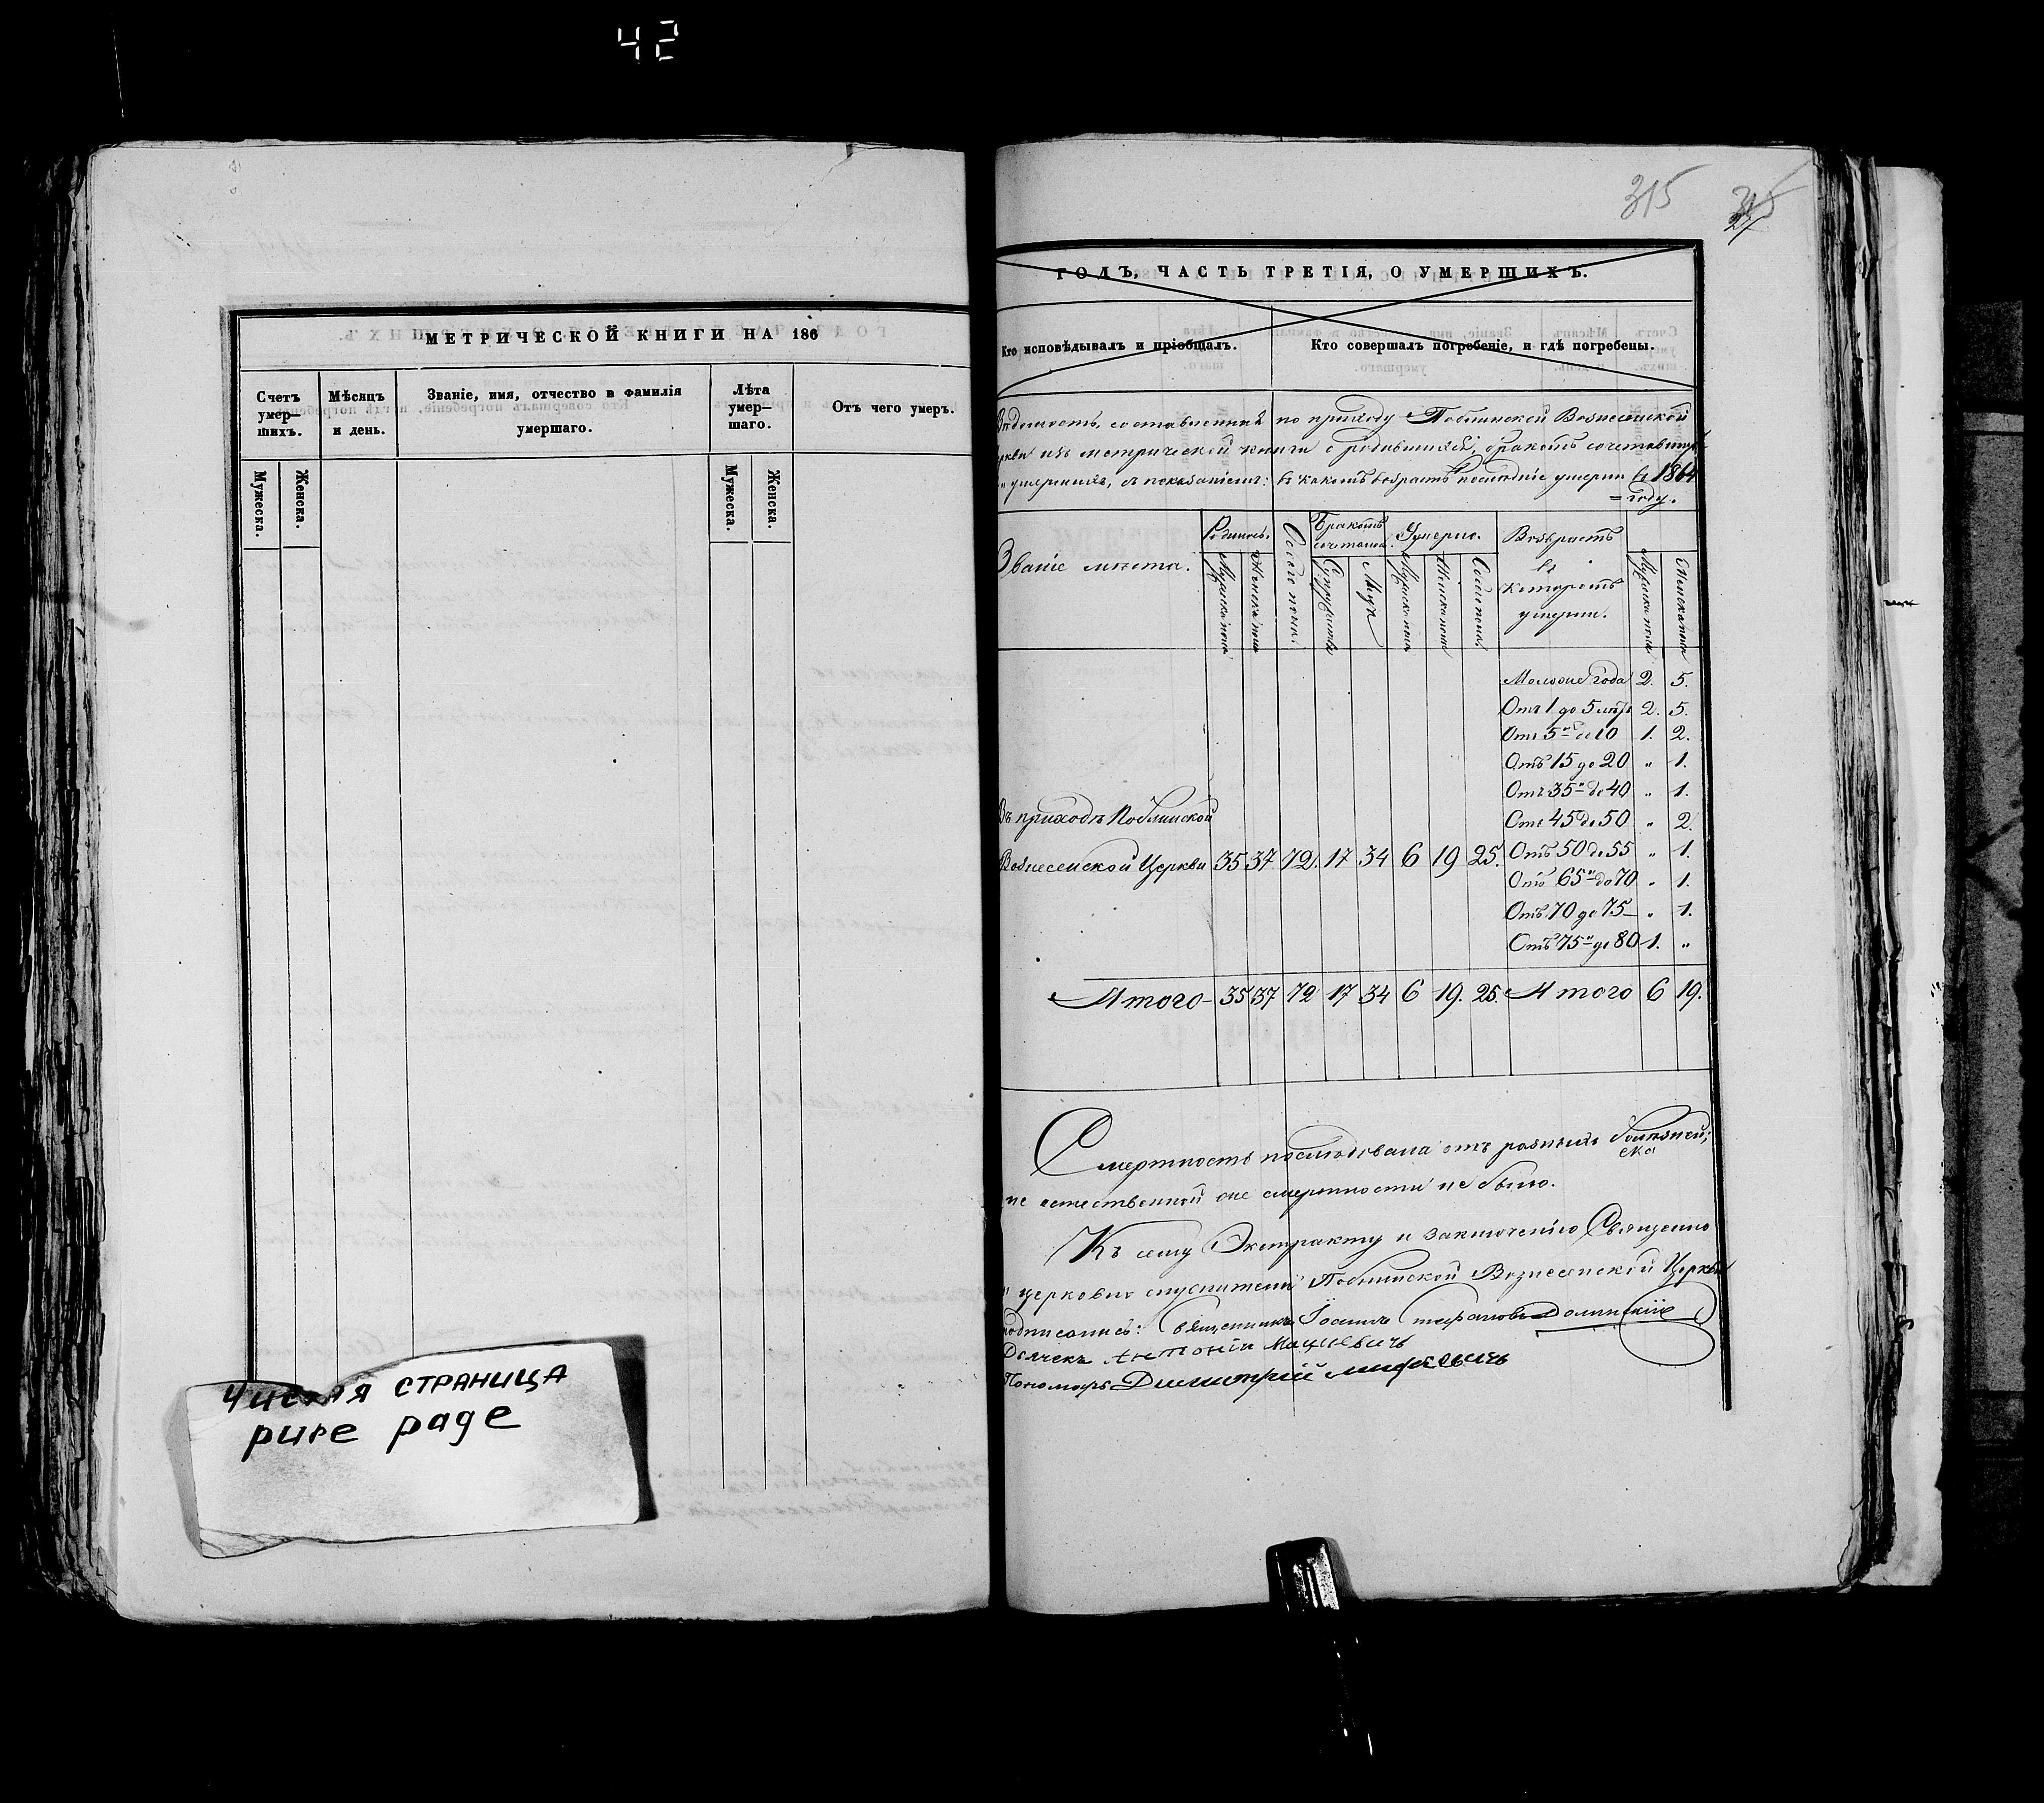 42
МЕТРИЧЕСКОЙ КНИГИ НА 186
Счетъ умер— шихъ.
Мѣсяцъ и день.
Званіе, имя, отчество и фамилія умершаго.
Лѣта умер— шаго.
Отъ чего умеръ.
Мужеска.
Женска.
Мужеска.
Женска.
Чистая СТРАНИЦА
pure page
315
ГОДЪ, ЧАСТЬ ТРЕТІЯ, О УМЕРШИХЪ.
Кто исповѣдывалъ и пріобщалъ.
Кто совершалъ погребеніе, и гдѣ погребены.
по приходу Вознесенской
изъ метрической книги о родившихся, бракомъ
умершихъ, съ показаніемъ: въ какомъ возрастѣ послѣдніе умерли въ 1864
году.
Званіе мѣста.
Родилось.
Обоего пола.
Бракомъ
Умерло.
Возрастъ
въ
которомъ
умерли.
Мужеска пола
Женска пола
Супружествъ
Мужеска пола
Женска пола
Обоего пола
Мужеска пола
Женска пола
года 2. 5.
Отъ 1 до 5 лѣтъ 2. 5.
Отъ 5 до 10 1. 2.
Отъ 15 до 20 " 1.
Отъ 35 до 40 " 1.
Отъ 45 до 50 " 2.
Отъ 50 до 55 " 1.
Отъ 65 до 70 " 1.
Отъ 70 до 75 " 1.
Отъ 75 до 80 1. "
Въ приходѣ
Вознесенской Церкви 35 37 72. 17 34 6 19 25.
Итого 35 37 72 17 34 6 19. 25. Итого 6 19.
Смертность послѣдовала отъ разныхъ болѣзней;
не естественной же смертности не было.
Къ сему Экстракту и заключенію Священно
церковно служители Вознесенской Церкви
подписались: Священникъ Іоаннъ
Дьячекъ Антоній Мацкевичъ
Пономарь Димитрій